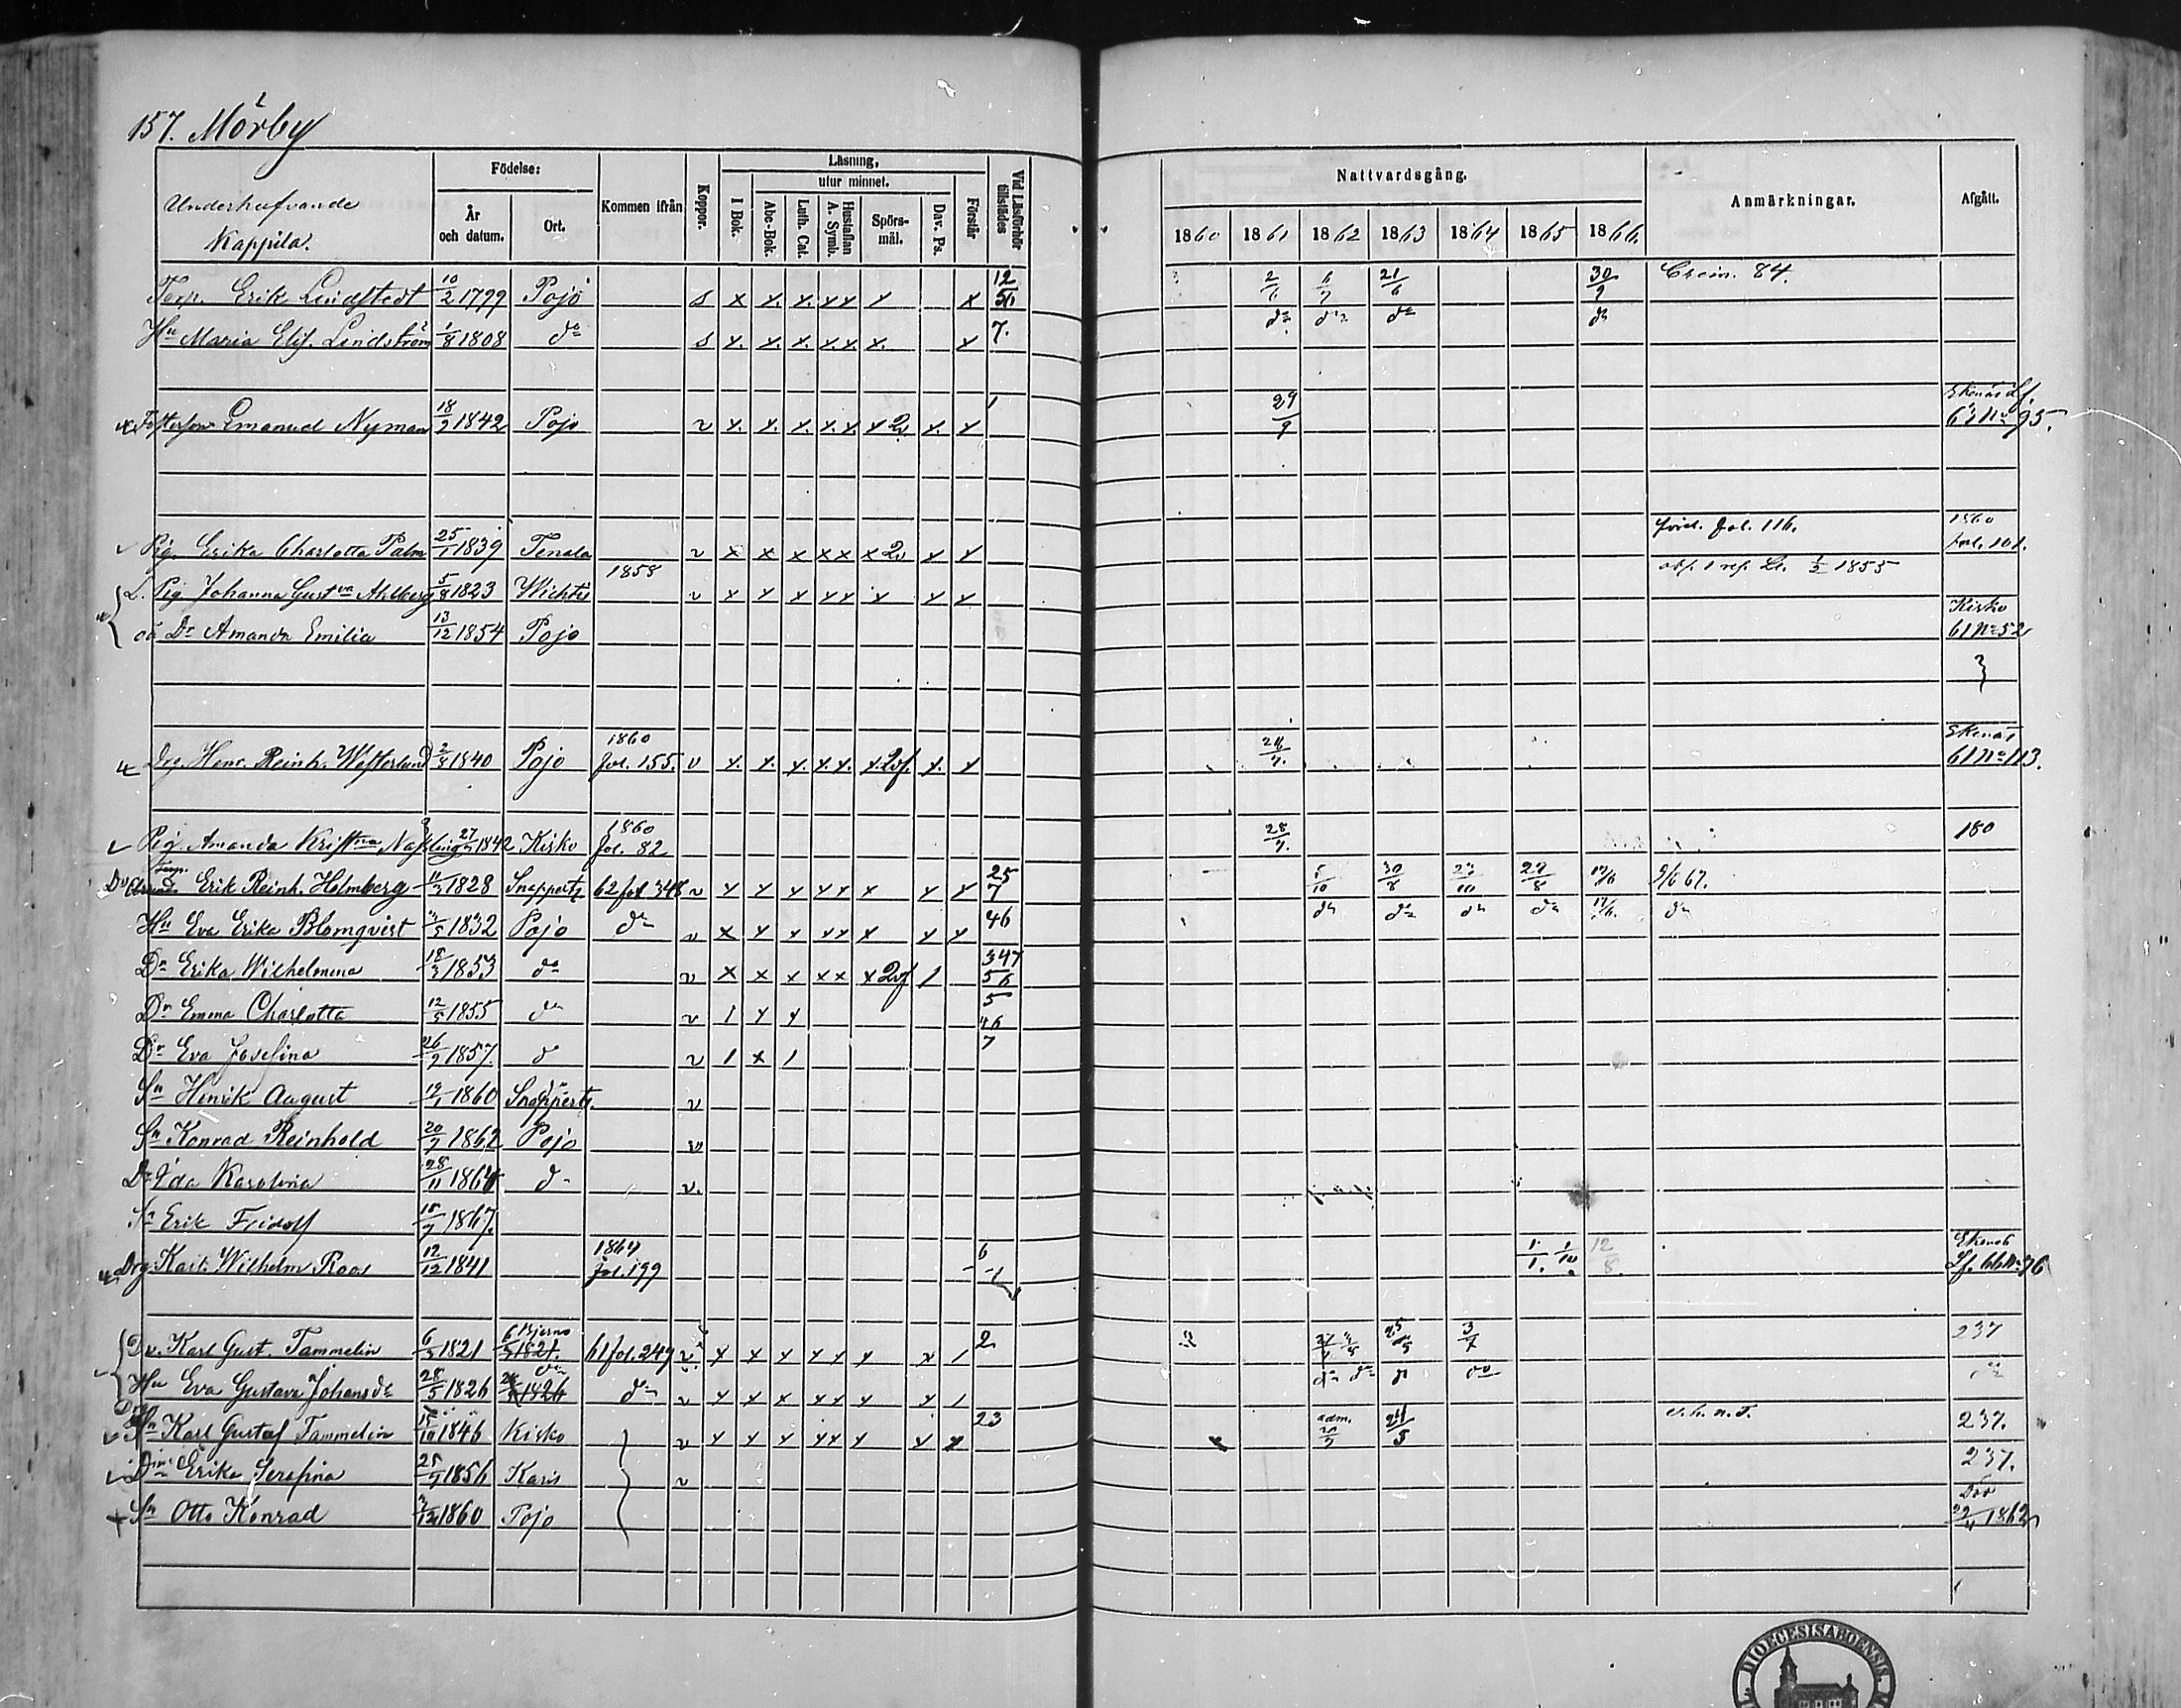 157. Mörby
Underhafvande
Kappila.
Födelse:
År och datum.
Ort.
Kommen ifrån
Koppor.
Läsning,
utur minnet.
I Bok.
Abc-Bok.
Luth. Cat.
Hustaflan A. Symb.
Spörs-mål.
Dav. Ps.
Förstår
Vid Läsförhör tillstädes
Nattvardsgång.
1860 1861 1862 1863 1864 1865 1866
Anmärkningar.
Afgått.
Torp. Erik Lindstedt 10/2 1799 Pojo s x x. x. x x x x 12 51 6/7 21/6 30/9 84.
Hu Maria Elis. Lindström 1/8 1808 do s x. x. x. x. x. x. x 7. do do do do
Fosterson Emanuel Nyman 18/9 1842 Pojo v x. x. x. x. x. x 2 x. x 1 29/9 Ekenäs Lf. 61 No 95.
Pig. Erika Charlotta Palm 25/1 1839 Tenala v x x x x x x 2 x x fol. 116. 1860 fol. 101.
L. Pig. Johanna Gustva Ahlberg 5/8 1823 Wichtis 1858 v x x x x x x x x 1855
oä Dr Amanda Emilia 13/12 1854 Pojo Kisko 61 No 52
Drg. Henr. Reinh. Westerlund 2/8 1840 Pojo 1860 fol. 155. v x. x. x. x. x. x. x. x Ekenäs 61 No 113.
Pig. Amanda Kristina 27 1842 Kisko 1860 fol. 82 28/7. 180
Torp. Erik Reinh. Holmberg 11/3 1828 Snappertz 62 fol 348 v x x x x x x x x 25 7 5/10 30/8 23/10 27/8 17/6 9/6 67.
Hu Eva Erika Blomqvist 3/5 1832 Pojo do v x x x x x x x x 46 do do do do 17/6. do
Dr Erika Wilhelmina 18/3 1853 do v x x x x x x 1 347 56
Dr Emma Charlotta 12/5 1855 do v 1 x x 5 46
Dr Eva Josefina 26/9 1857. d v 1 x 1 7
Sn Henrik August 19/1 1860 Snapperts. v
Sn Konrad Reinhold 20/7 1862 Pojo v
Dr Ida Karolina 28/11 1864 d v.
Sn Erik Fridolf 15/7 1867.
Drg. Karl Wilhelm Roos 12/12 1841 1864 fol. 199 6 1/1. 1/10 12/8. Ekenäs Lf. 66 No 76
Dv. Karl Gust. Tammelin 6/3 1821 Bjerno 6/3 1821. 61 fol. 249 v x x x x x x x 1 2 25/5 3/7 237
Hu Eva Gustava Johansdr 28/5 1826 do 1826 do v x x x x x x x 1 do do d do do
Sn Karl Gustaf Tammelin 15/10 1846 Kisko v x x x x x x x x 23 adm. 24/5 237.
Dr Erika Serafina 25/7 1856 Karis v 237.
Sn Otto Konrad 1860 Pojo Död 22/4 1862
DIOECESIS ABOENSIS.